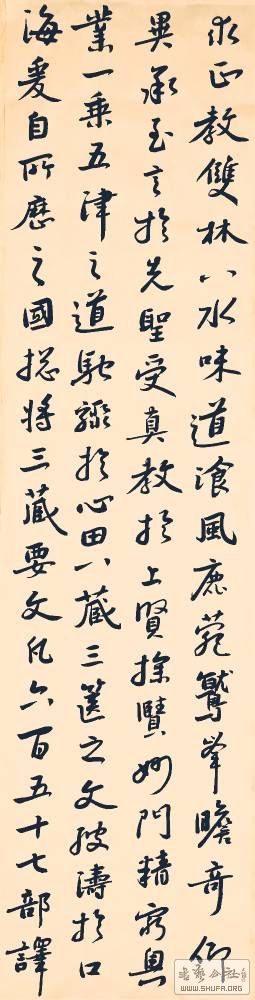 求正教雙林八水味道飡風鹿菀鷲峯瞻奇仰
異承至言於先聖受真教於上賢探賾妙門精窮奥
業一乗五津之道馳驟於心田八藏三篋之文波濤於口
海爰自所歷之國捴將三藏要文凡六百五十七部譯
WWW.SHUFA.ORG